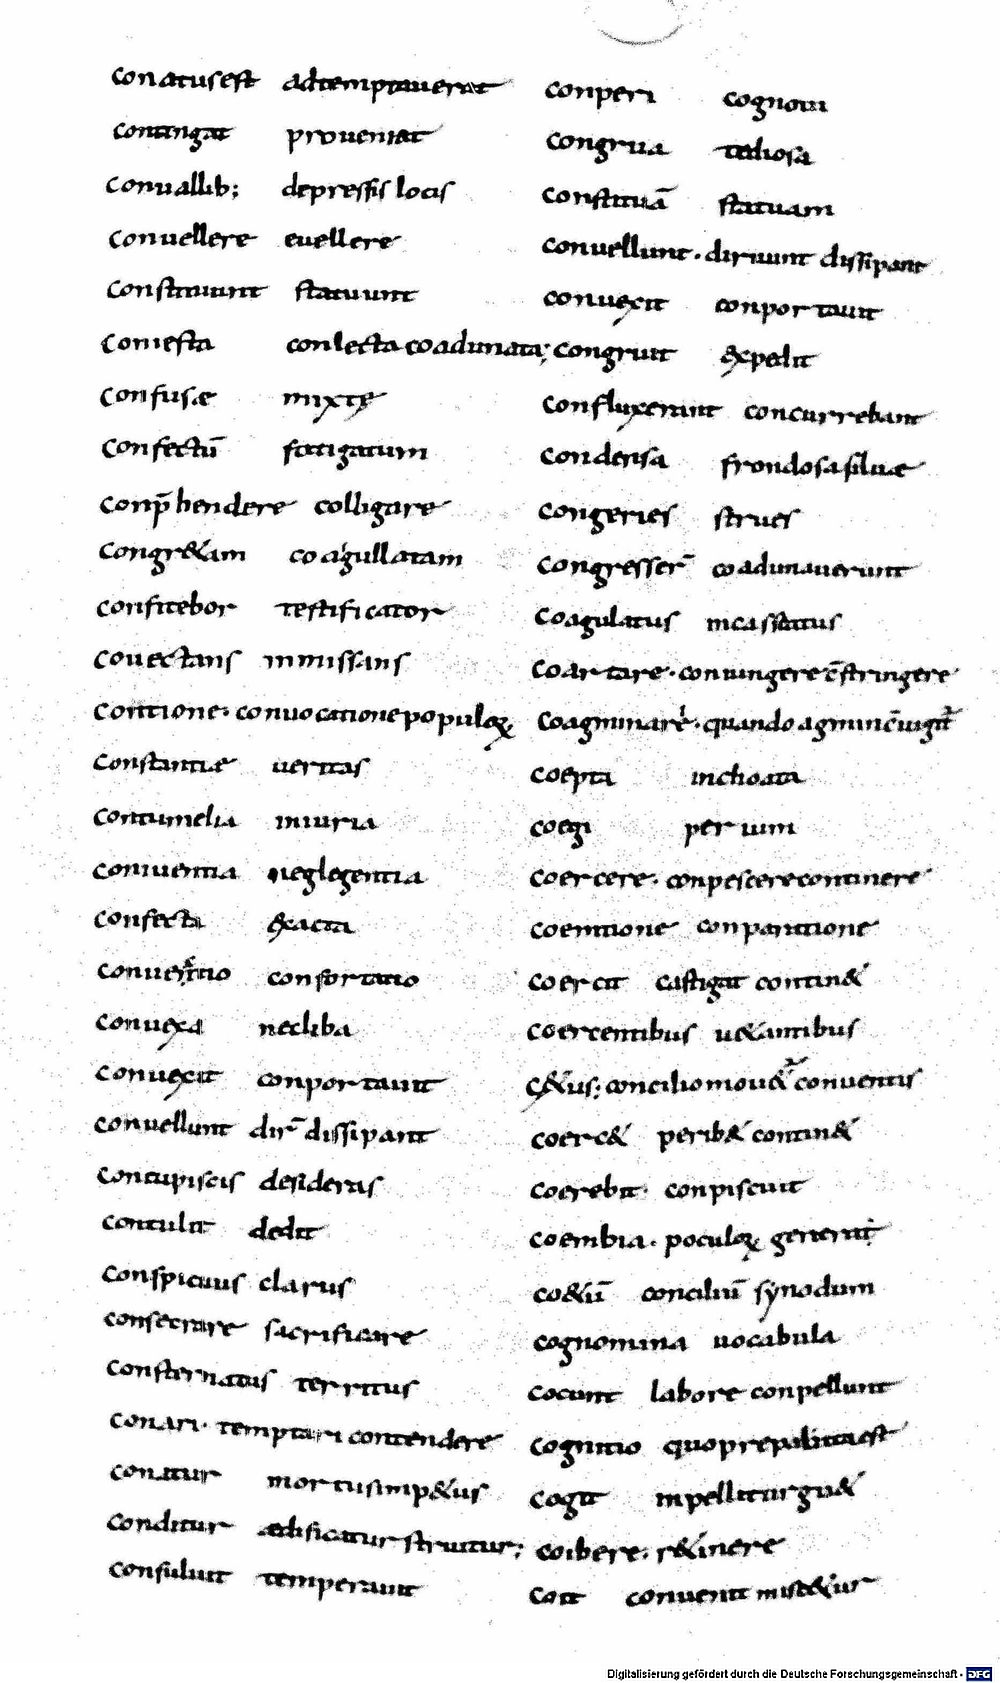 conatus est adtemptauerat
contingat proueniat
conuallib; depressis locis
conuellere euellere
constituunt statuunt
coniesta conlecta coadunata;
confusæ mixtę
confectū fatigatum
conp̄hendere colligare
congr&am coagullatam
confitebor testificator
couectans inmissans
contione· conuocatione populoꝝ
constantiæ ueritas
contumelia iniuria
coniuentia neglegentia
confecta exacta
confortatio
conuexa necliba
conuexit conportauit
conuellunt dir̄ dissipant
concupiscis desideras
contulit dedit
conspicuus clarus
consecrare sacrificare
consternatus territus
conari· temptari contendere
conatur mortusimp&us
conditur ædificatur struitur;
consuluit temperauit
conperi cognoui
congrua tediosa
constituā statuam
conuellunt· diruunt dissipant
conuexit conportauit
congruit expedit
confluxerant concurrebant
condensa frondosa siluæ
congeries strues
congresser̄ coadunauerunt
coagulatus incassatus
coartare· coniungere c̄stringere
coaginare· quando agmin
coepta inchoata
coegi per uim
coercere· conpescere continere
coemtione conparatione
coercit castigat contin&
coercentibus u&antibus
c&us; concilio mou& conuentis
coerc& perib& contin&
coerebit· conpiscuit
coembia· poculoꝝ generat
co&ū conciliū synodum
cognomina uocabula
cocunt labore conpellunt
cognitio quo prepalata est
cogit inpellit urgu&
coibere· r&inere
coit conuenit misc&ur
Digitalisierung gefördert durch die Deutsche Forschungsgemeinschaft - DFG